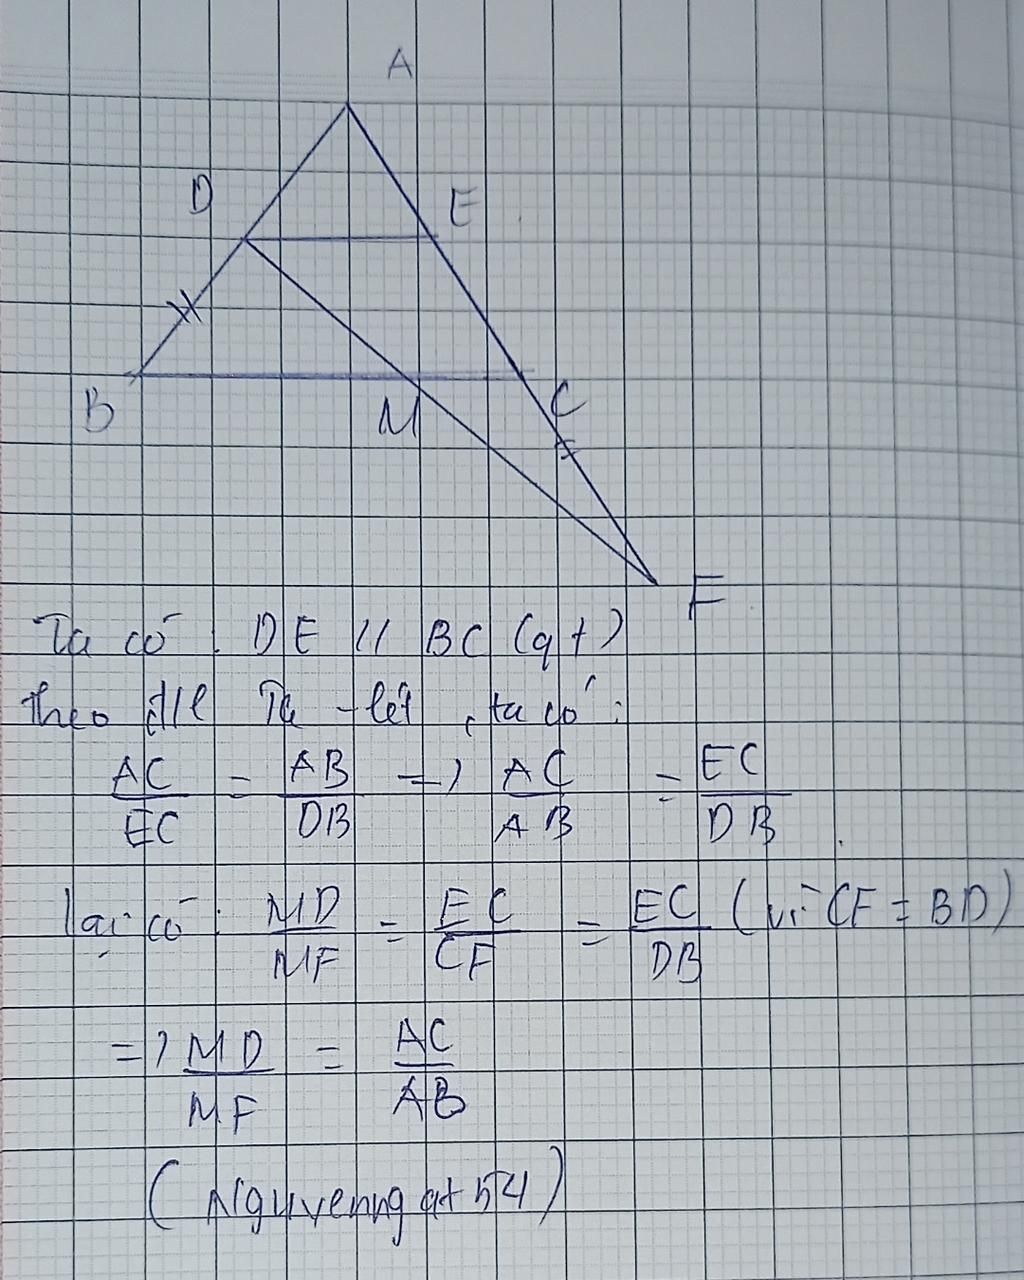 A
D E
B M C
F
Ta có : DE // BC (gt)
theo đ/l Ta-lét, ta có :
AC/EC = AB/DB => AC/AB = EC/DB .
lại có : MD/MF = EC/CF = EC/DB (vì CF = BD)
=> MD/MF = AC/AB
(Nguyenngat54)